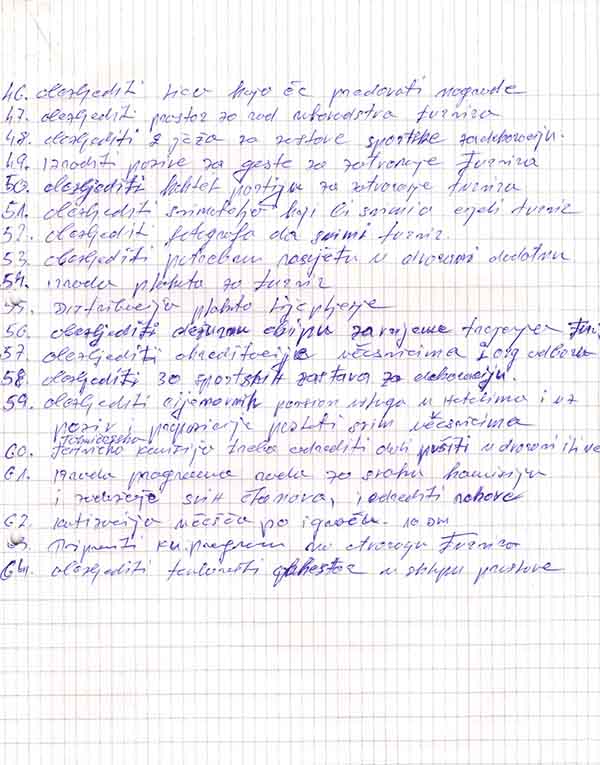 46. obezbjediti lica koja će predavati nagrade
47. obezbjediti prostor za rad rukovodstva turnira
48. obezbjediti 2 jača za zastave sportske za dekoraciju.
49. izraditi pozive za goste za zatvaranje turnira
50. obezbjediti koktel partiju za otvoranje turnira
51. obezbjediti snimatelja koji bi snimio cijeli turnir
52. obezbjediti fotografa da snimi turnir.
53. obezbjediti potrebnu rasvjetu u dvorani dodatnu
54. izrada plakata za turnir
55. Distribucija plakata lijepljenje
56. obezbjediti dežurnu ekipu za vrijeme trajanja
57. obezbjediti akreditacije učesnicima i org odboru
58. obezbjediti 30 sportskih zastava za dekoraciju.
59. obezbjediti cijenovnik pansion usluga u hotelima i uz
poziv i propozicije poslati svim učesnicima
60. Tehnička komisija treba odrediti dali pušiti u dvorani ili ne
61. izrada programa rada za svaku komisiju
i zaduženje svih članova, i odrediti rokove
62. kotizacija učešća po igraču. 10 DM
63. Pripremiti kul. program na otvoranju turnira
64. obezbjediti u sklopu prostora